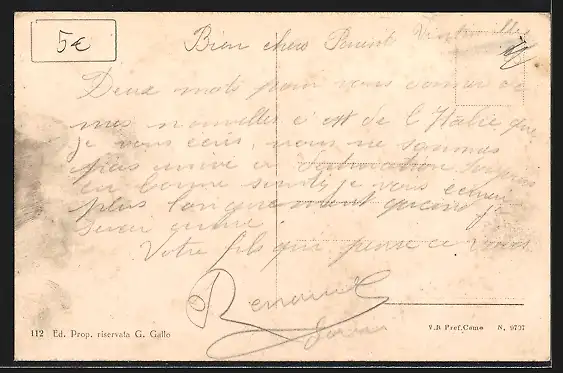 5€
Bien chers Parent Vintimille
Deux mots pour vous donner de
mes nouvelles c est de l'Italie que
je vous écris, nous ne sommes
pas arrivé a toujours
en bonne santé je vous
plus longuement quand j
serer arrivé
Votre fils qui pense a vous
112 Ed. Prop. riservata G. Gallo
V.B Pref.Como N. 9797